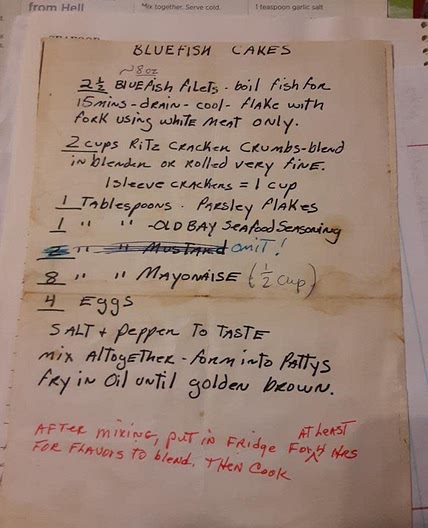 from Hell
Mix together. Serve cold.
1 teaspoon garlic salt
BLUEFISH CAKES
~8oz
2 1/2 BLUEfish filets - boil fish for
15 mins - drain - cool - flake with
fork using white meat only.
2 cups Ritz Cracker Crumbs - blend
in blender or rolled very fine.
1 sleeve crackers = 1 cup
1 Tablespoons - Parsley Flakes
1 " " - OLD BAY Seafood Seasoning
2 " " Mustard OMIT!
8 " " Mayonaise (1/2 cup)
4 Eggs
SALT & Pepper To TASTE
mix Altogether - form into Pattys
fry in Oil until golden brown.
AFTER mixing, put in Fridge For AT least 4 HRS
FOR FLAVORS to blend. THEN COOK